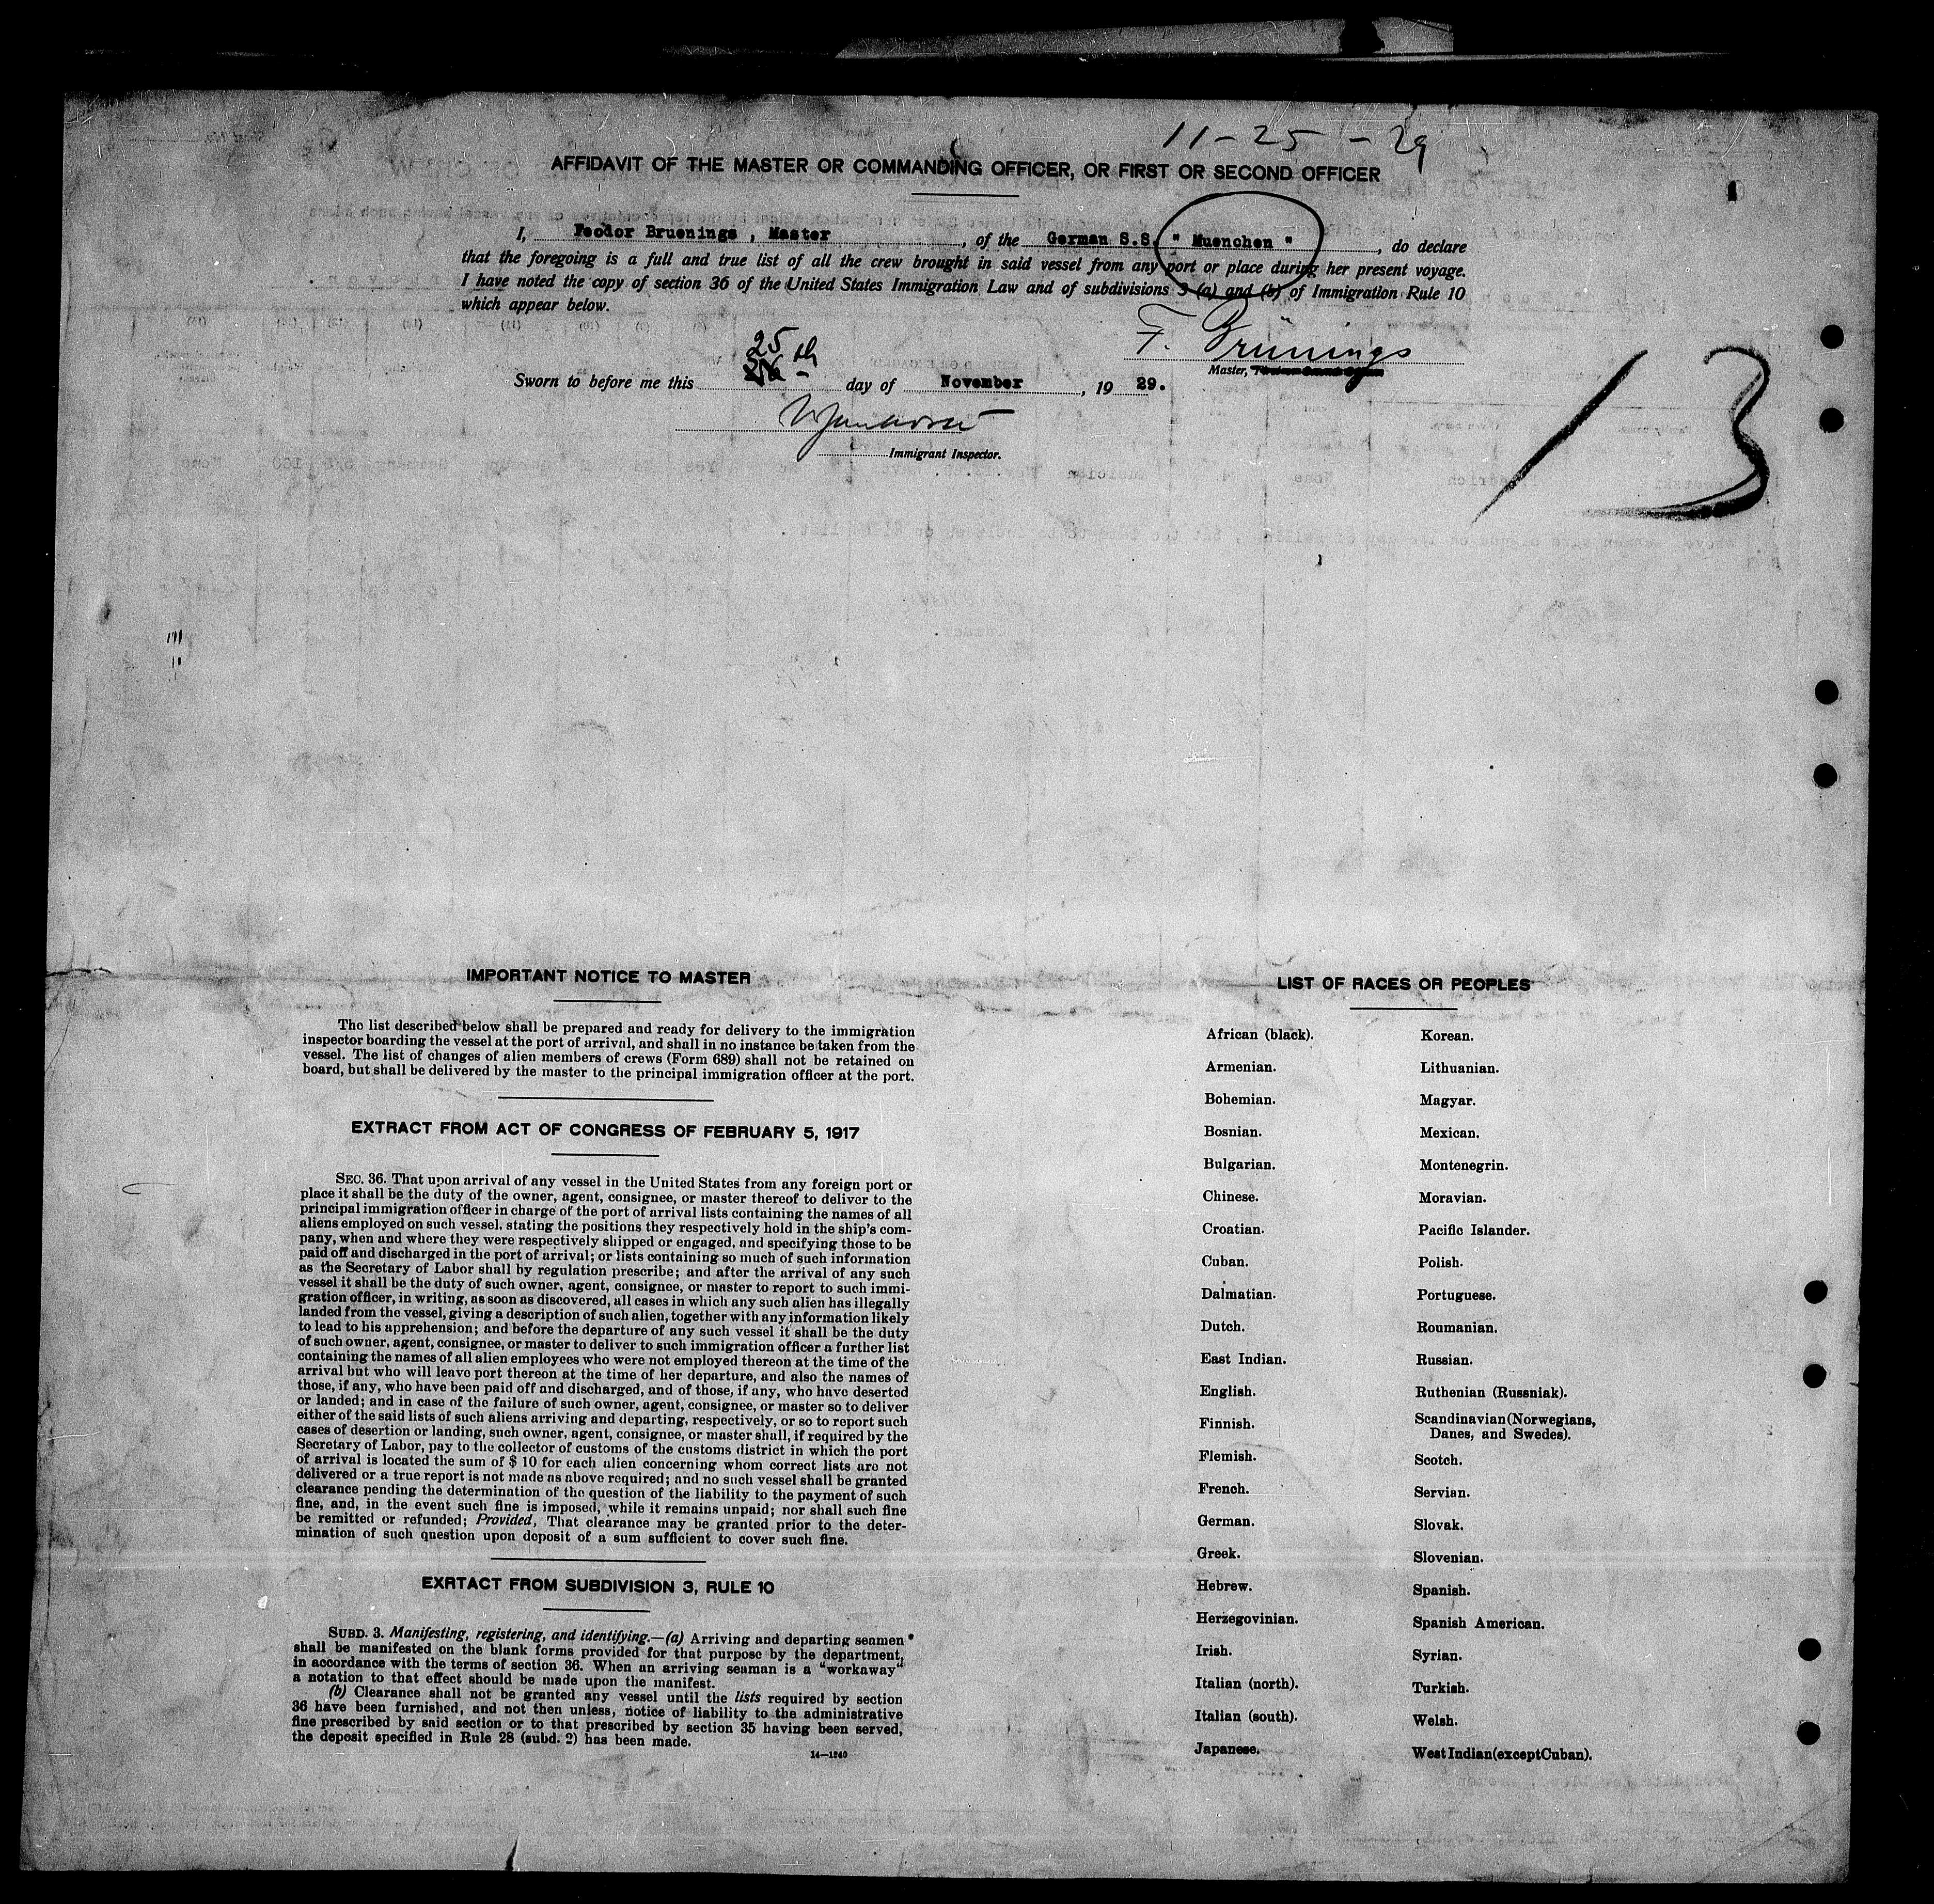 11-25-29
AFFIDAVIT OF THE MASTER OR COMMANDING OFFICER, OR FIRST OR SECOND OFFICER
I, Feodor Bruenings , Master, of the German S.S. " Muenchen ", do declare
that the foregoing is a full and true list of all the crew brought in said vessel from any port or place during her present voyage.
I have noted the copy of section 36 of the United States Immigration Law and of subdivisions 3 (a) and (b) of Immigration Rule 10
which appear below.
F. Brünings
Master,
25th
Sworn to before me this day of November, 19 29.
Immigrant Inspector.
13
IMPORTANT NOTICE TO MASTER
The list described below shall be prepared and ready for delivery to the immigration
inspector boarding the vessel at the port of arrival, and shall in no instance be taken from the
vessel. The list of changes of alien members of crews (Form 689) shall not be retained on
board, but shall be delivered by the master to the principal immigration officer at the port.
EXTRACT FROM ACT OF CONGRESS OF FEBRUARY 5, 1917
SEC. 36. That upon arrival of any vessel in the United States from any foreign port or
place it shall be the duty of the owner, agent, consignee, or master thereof to deliver to the
principal immigration officer in charge of the port of arrival lists containing the names of all
aliens employed on such vessel, stating the positions they respectively hold in the ship's com-
pany, when and where they were respectively shipped or engaged, and specifying those to be
paid off and discharged in the port of arrival; or lists containing so much of such information
as the Secretary of Labor shall by regulation prescribe; and after the arrival of any such
vessel it shall be the duty of such owner, agent, consignee, or master to report to such immi-
gration officer, in writing, as soon as discovered, all cases in which any such alien has illegally
landed from the vessel, giving a description of such alien, together with any information likely
to lead to his apprehension; and before the departure of any such vessel it shall be the duty
of such owner, agent, consignee, or master to deliver to such immigration officer a further list
containing the names of all alien employees who were not employed thereon at the time of the
arrival but who will leave port thereon at the time of her departure, and also the names of
those, if any, who have been paid off and discharged, and of those, if any, who have deserted
or landed; and in case of the failure of such owner, agent, consignee, or master so to deliver
either of the said lists of such aliens arriving and departing, respectively, or so to report such
cases of desertion or landing, such owner, agent, consignee, or master shall, if required by the
Secretary of Labor, pay to the collector of customs of the customs district in which the port
of arrival is located the sum of $ 10 for each alien concerning whom correct lists are not
delivered or a true report is not made as above required; and no such vessel shall be granted
clearance pending the determination of the question of the liability to the payment of such
fine, and, in the event such fine is imposed, while it remains unpaid; nor shall such fine
be remitted or refunded; Provided, That clearance may be granted prior to the deter-
mination of such question upon deposit of a sum sufficient to cover such fine.
EXRTACT FROM SUBDIVISION 3, RULE 10
SUBD. 3. Manifesting, registering, and identifying.—(a) Arriving and departing seamen
shall be manifested on the blank forms provided for that purpose by the department,
in accordance with the terms of section 36. When an arriving seaman is a "workaway"
a notation to that effect should be made upon the manifest.
(b) Clearance shall not be granted any vessel until the lists required by section
36 have been furnished, and not then unless, notice of liability to the administrative
fine prescribed by said section or to that prescribed by section 35 having been served,
the deposit specified in Rule 28 (subd. 2) has been made.
14—1240
LIST OF RACES OR PEOPLES
African (black).
Armenian.
Bohemian.
Bosnian.
Bulgarian.
Chinese.
Croatian.
Cuban.
Dalmatian.
Dutch.
East Indian.
English.
Finnish.
Flemish.
French.
German.
Greek.
Hebrew.
Herzegovinian.
Irish.
Italian (north).
Italian (south).
Japanese.
Korean.
Lithuanian.
Magyar.
Mexican.
Montenegrin.
Moravian.
Pacific Islander.
Polish.
Portuguese.
Roumanian.
Russian.
Ruthenian (Russniak).
Scandinavian(Norwegians,
Danes, and Swedes).
Scotch.
Servian.
Slovak.
Slovenian.
Spanish.
Spanish American.
Syrian.
Turkish.
Welsh.
West Indian(except Cuban).